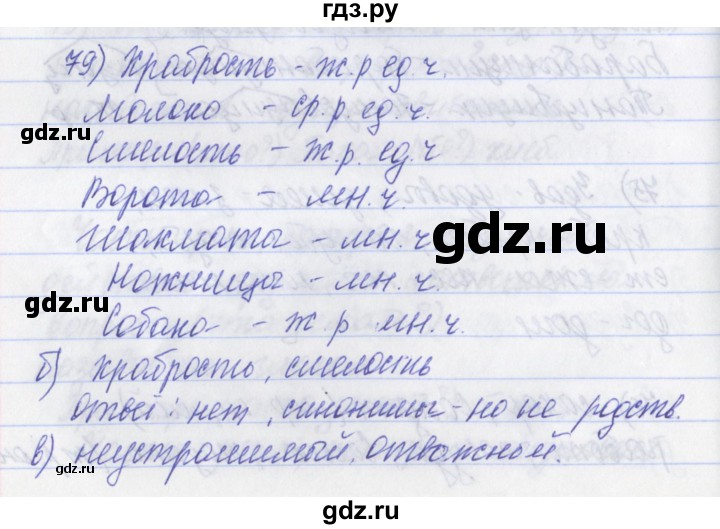 гдз.ру
79) Храбрость - ж.р ед.ч.
Молоко - ср.р. ед.ч.
gdz.ru
Смелость - ж.р. ед.ч
Ворота - мн.ч.
gdz.ru
Шахматы - мн.ч
Ножницы - мн.ч.
gdz.ru
Собака - ж р мн.ч.
б) храбрость, смелость
ответ: нет, синонимы - но не родств.
в) неустрашимый, отважной.
gdz.ru
gdz.ru